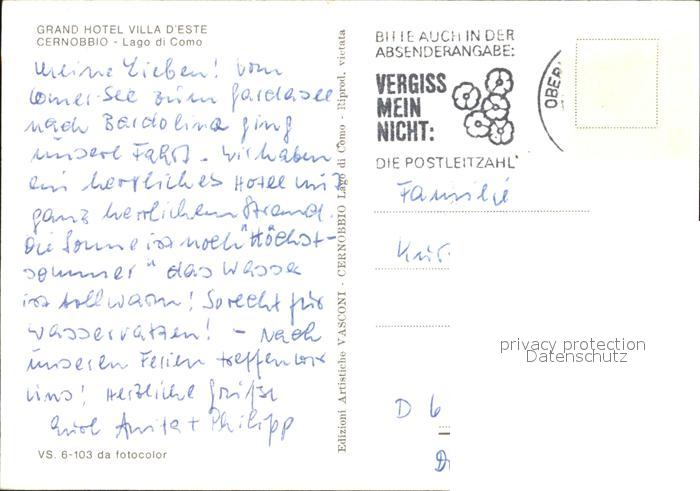 GRAND HOTEL VILLA D'ESTE
CERNOBBIO - Lago di Como
Meine Lieben! Vom
Comer-See zum Gardasee
nach Bardolino ging
unsere Fahrt. Wir haben
ein herrliches Hotel mit
ganz herrlichem Strand.
Die Sonne ist noch "Höchst-
sommer" das Wasser
ist toll warm! So recht für
Wasserratten! - Nach
unseren Ferien treffen wir
uns! Herzliche Grüße
Eure Anita + Philipp
VS. 6-103 da fotocolor
Edizioni Artistiche VASCONI - CERNOBBIO Lago di Como - Riprod. vietata
BITTE AUCH IN DER
ABSENDERANGABE:
VERGISS
MEIN
NICHT:
DIE POSTLEITZAHL
OBER
Familie
D 6
privacy protection
Datenschutz